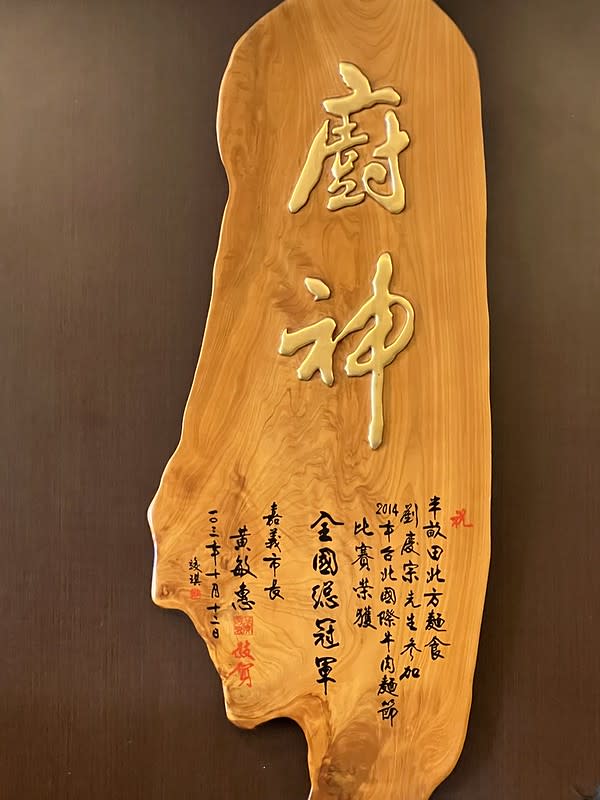 廚神
祝
半畝田北方麵食
劉慶宗先生參加
2014年台北國際牛肉麵節
比賽榮獲
全國總冠軍
嘉義市長
黃敏惠
敬賀
一〇三年十月十二日